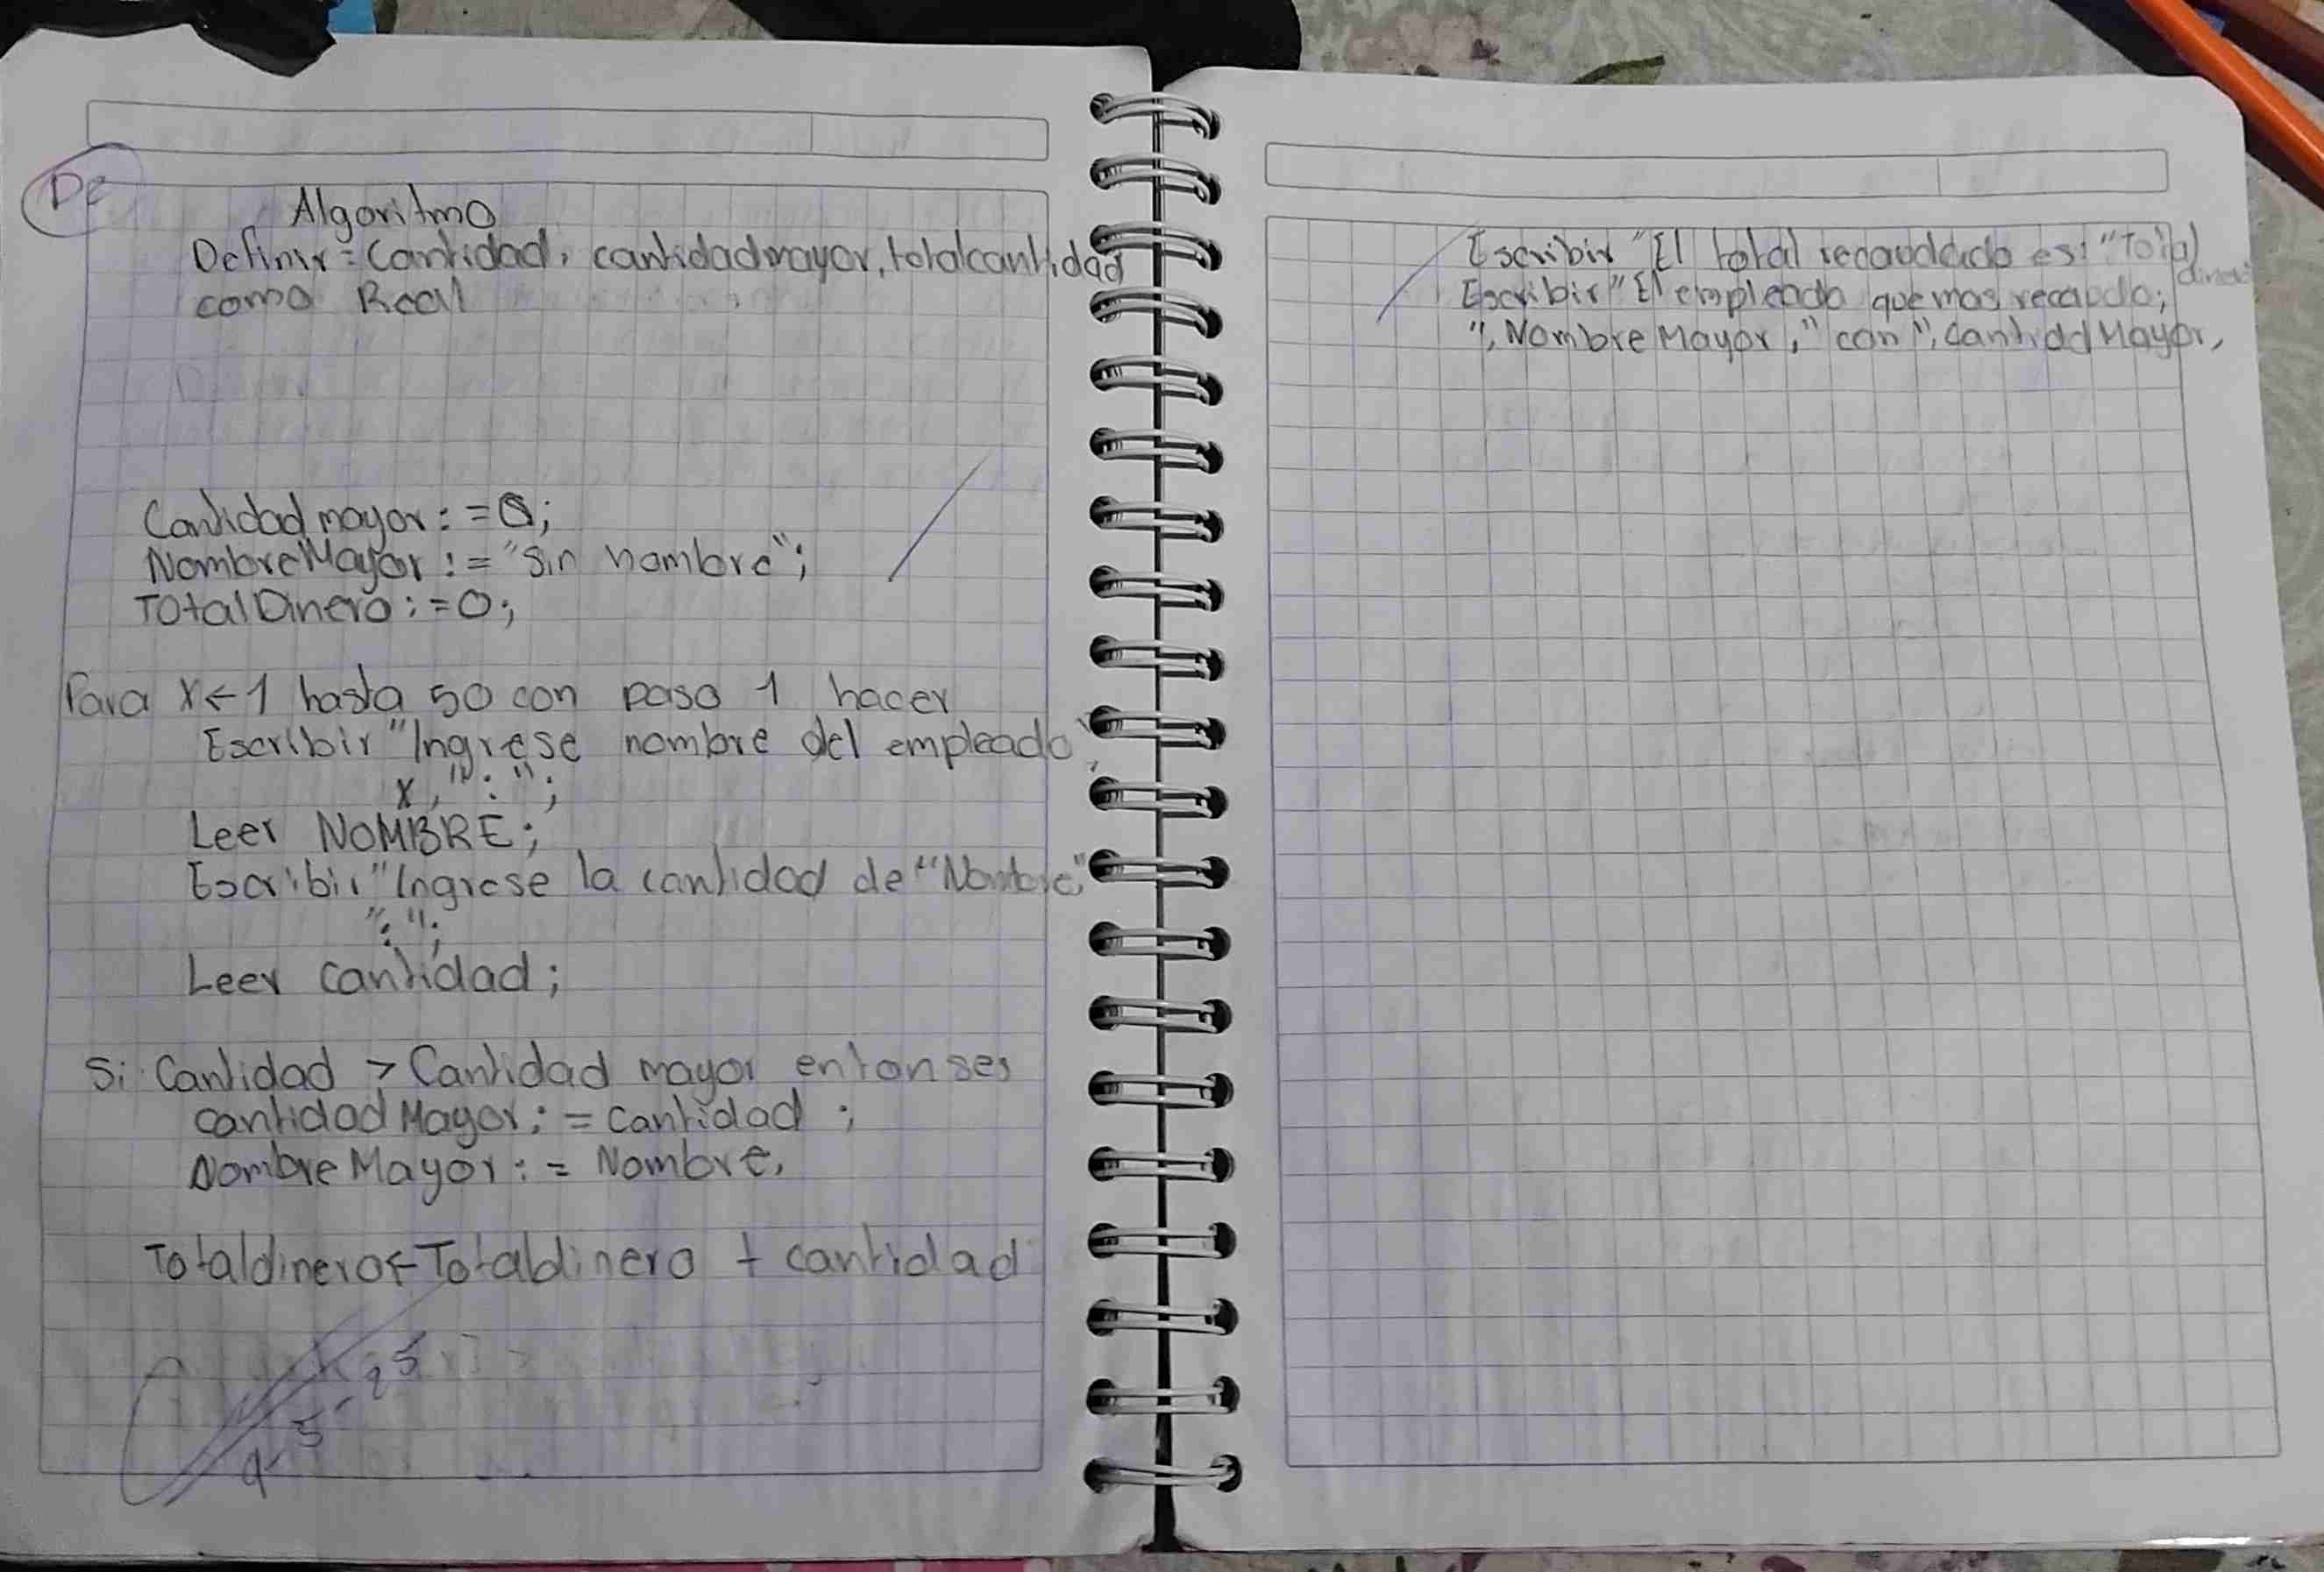 De
Algoritmo
Definir = Cantidad, cantidadmayor, totalcantidad
como Real
Cantidad mayor := 0;
NombreMayor := "sin nombre";
TotalDinero := 0;
Para X ← 1 hasta 50 con paso 1 hacer
Escribir "Ingrese nombre del empleado",
x, " : ";
Leer NOMBRE;
Escribir "Ingrese la cantidad de "Nombre"
" : ";
Leer cantidad;
Si Cantidad > Cantidad mayor entonses
cantidad Mayor := cantidad ;
Nombre Mayor := Nombre,
Totaldinero ← Totaldinero + cantidad
9-5-25
Escribir "El total recaudado es: "Total
dinero
Escribir "El empleado que mas recaudo;
", Nombre Mayor, " con ", cantidd Mayor,